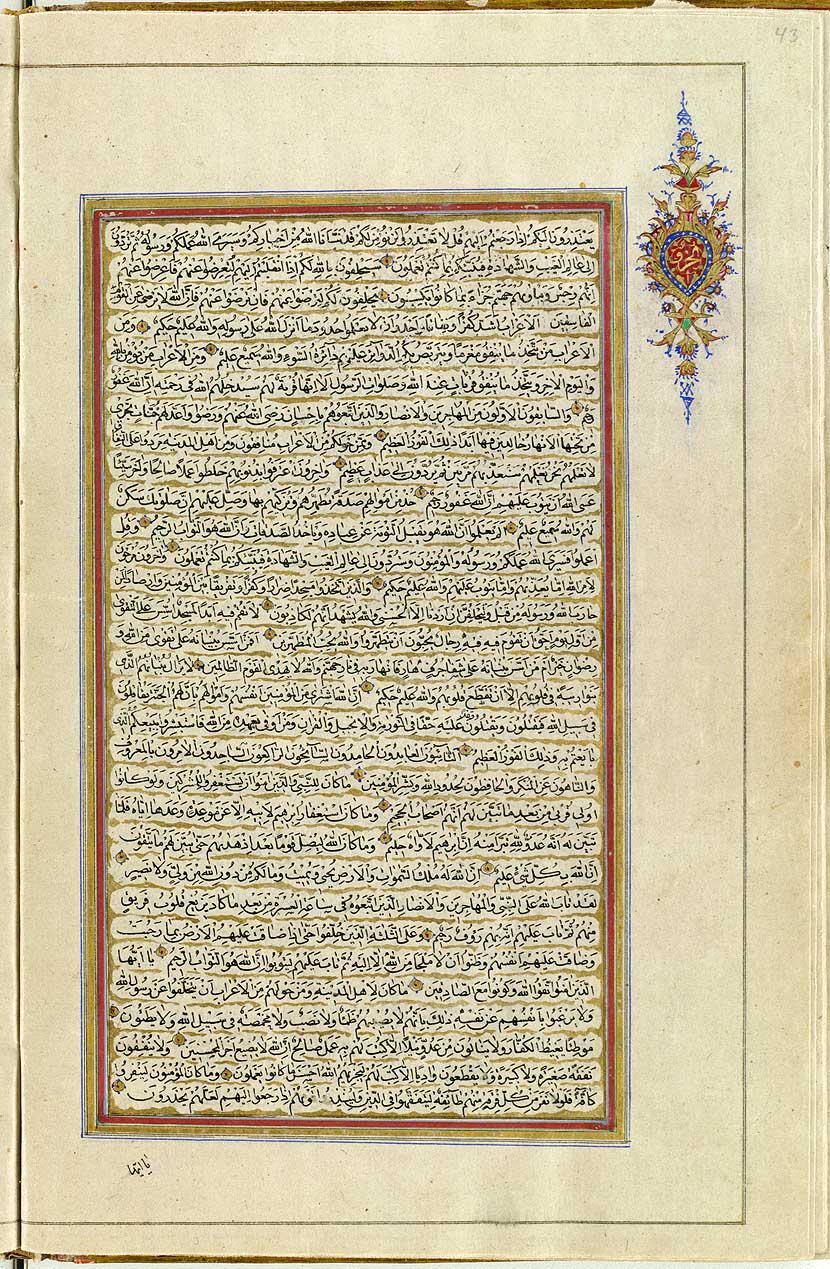 43
يعتذرون اليكم اذا رجعتم اليهم قل لا تعتذروا لن نؤمن لكم قد نبأنا الله من اخباركم وسيرى الله عملكم ورسوله ثم تردون
الى عالم الغيب والشهادة فينبئكم بما كنتم تعملون سيحلفون بالله لكم اذا انقلبتم اليهم لتعرضوا عنهم فاعرضوا عنهم
انهم رجس ومأويهم جهنم جزاء بما كانوا يكسبون يحلفون لكم لترضوا عنهم فان ترضوا عنهم فان الله لا يرضى عن القوم
الفاسقين الاعراب اشد كفرا ونفاقا واجدر ان لا يعلموا حدود ما انزل الله على رسوله والله عليم حكيم ومن
الاعراب من يتخذ ما ينفق مغرما ويتربص بكم الدوائر عليهم دائرة السوء والله سميع عليم ومن الاعراب من يؤمن بالله
واليوم الاخر ويتخذ ما ينفق قربات عند الله وصلوات الرسول الا انها قربة لهم سيدخلهم الله في رحمته ان الله غفور
رحيم والسابقون الاولون من المهاجرين والانصار والذين اتبعوهم باحسان رضي الله عنهم ورضوا عنه واعد لهم جنات تجري
من تحتها الانهار خالدين فيها ابدا ذلك الفوز العظيم وممن حولكم من الاعراب منافقون ومن اهل المدينة مردوا على النفاق
لا تعلمهم نحن نعلمهم سنعذبهم مرتين ثم يردون الى عذاب عظيم واخرون اعترفوا بذنوبهم خلطوا عملا صالحا واخر سيئا
عسى الله ان يتوب عليهم ان الله غفور رحيم خذ من اموالهم صدقة تطهرهم وتزكيهم بها وصل عليهم ان صلوتك سكن
لهم والله سميع عليم الم يعلموا ان الله هو يقبل التوبة عن عباده وياخذ الصدقات وان الله هو التواب الرحيم وقل
اعملوا فسيرى الله عملكم ورسوله والمؤمنون وستردون الى عالم الغيب والشهادة فينبئكم بما كنتم تعملون واخرون مرجون
لامر الله اما يعذبهم واما يتوب عليهم والله عليم حكيم والذين اتخذوا مسجدا ضرارا وكفرا وتفريقا بين المؤمنين وارصادا لمن
حارب الله ورسوله من قبل وليحلفن ان اردنا الا الحسنى والله يشهد انهم لكاذبون لا تقم فيه ابدا لمسجد اسس على التقوى
من اول يوم احق ان تقوم فيه فيه رجال يحبون ان يتطهروا والله يحب المطهرين افمن اسس بنيانه على تقوى من الله و
رضوان خير ام من اسس بنيانه على شفا جرف هار فانهار به في نار جهنم والله لا يهدي القوم الظالمين لا يزال بنيانهم الذي
بنوا ريبة في قلوبهم الا ان تقطع قلوبهم والله عليم حكيم ان الله اشترى من المؤمنين انفسهم واموالهم بان لهم الجنة يقاتلون
في سبيل الله فيقتلون ويقتلون وعدا عليه حقا في التورية والانجيل والقران ومن اوفى بعهده من الله فاستبشروا ببيعكم الذي
بايعتم به وذلك الفوز العظيم التائبون العابدون الحامدون السائحون الراكعون الساجدون الامرون بالمعروف
والناهون عن المنكر والحافظون لحدود الله وبشر المؤمنين ما كان للنبي والذين امنوا ان يستغفروا للمشركين ولو كانوا
اولي قربى من بعد ما تبين لهم انهم اصحاب الجحيم وما كان استغفار ابرهيم لابيه الا عن موعدة وعدها اياه فلما
تبين له انه عدو لله تبرا منه ان ابرهيم لاواه حليم وما كان الله ليضل قوما بعد اذ هديهم حتى يبين لهم ما يتقون
ان الله بكل شئ عليم ان الله له ملك السموات والارض يحيي ويميت وما لكم من دون الله من ولي ولا نصير
لقد تاب الله على النبي والمهاجرين والانصار الذين اتبعوه في ساعة العسرة من بعد ما كاد يزيغ قلوب فريق
منهم ثم تاب عليهم انه بهم رؤف رحيم وعلى الثلثة الذين خلفوا حتى اذا ضاقت عليهم الارض بما رحبت
وضاقت عليهم انفسهم وظنوا ان لا ملجأ من الله الا اليه ثم تاب عليهم ليتوبوا ان الله هو التواب الرحيم يا ايها
الذين امنوا اتقوا الله وكونوا مع الصادقين ما كان لاهل المدينة ومن حولهم من الاعراب ان يتخلفوا عن رسول الله
ولا يرغبوا بانفسهم عن نفسه ذلك بانهم لا يصيبهم ظمأ ولا نصب ولا مخمصة في سبيل الله ولا يطئون
موطئا يغيظ الكفار ولا ينالون من عدو نيلا الا كتب لهم به عمل صالح ان الله لا يضيع اجر المحسنين ولا ينفقون
نفقة صغيرة ولا كبيرة ولا يقطعون واديا الا كتب لهم ليجزيهم الله احسن ما كانوا يعملون وما كان المؤمنون لينفروا
كافة فلولا نفر من كل فرقة منهم طائفة ليتفقهوا في الدين ولينذروا قومهم اذا رجعوا اليهم لعلهم يحذرون
يا ايها